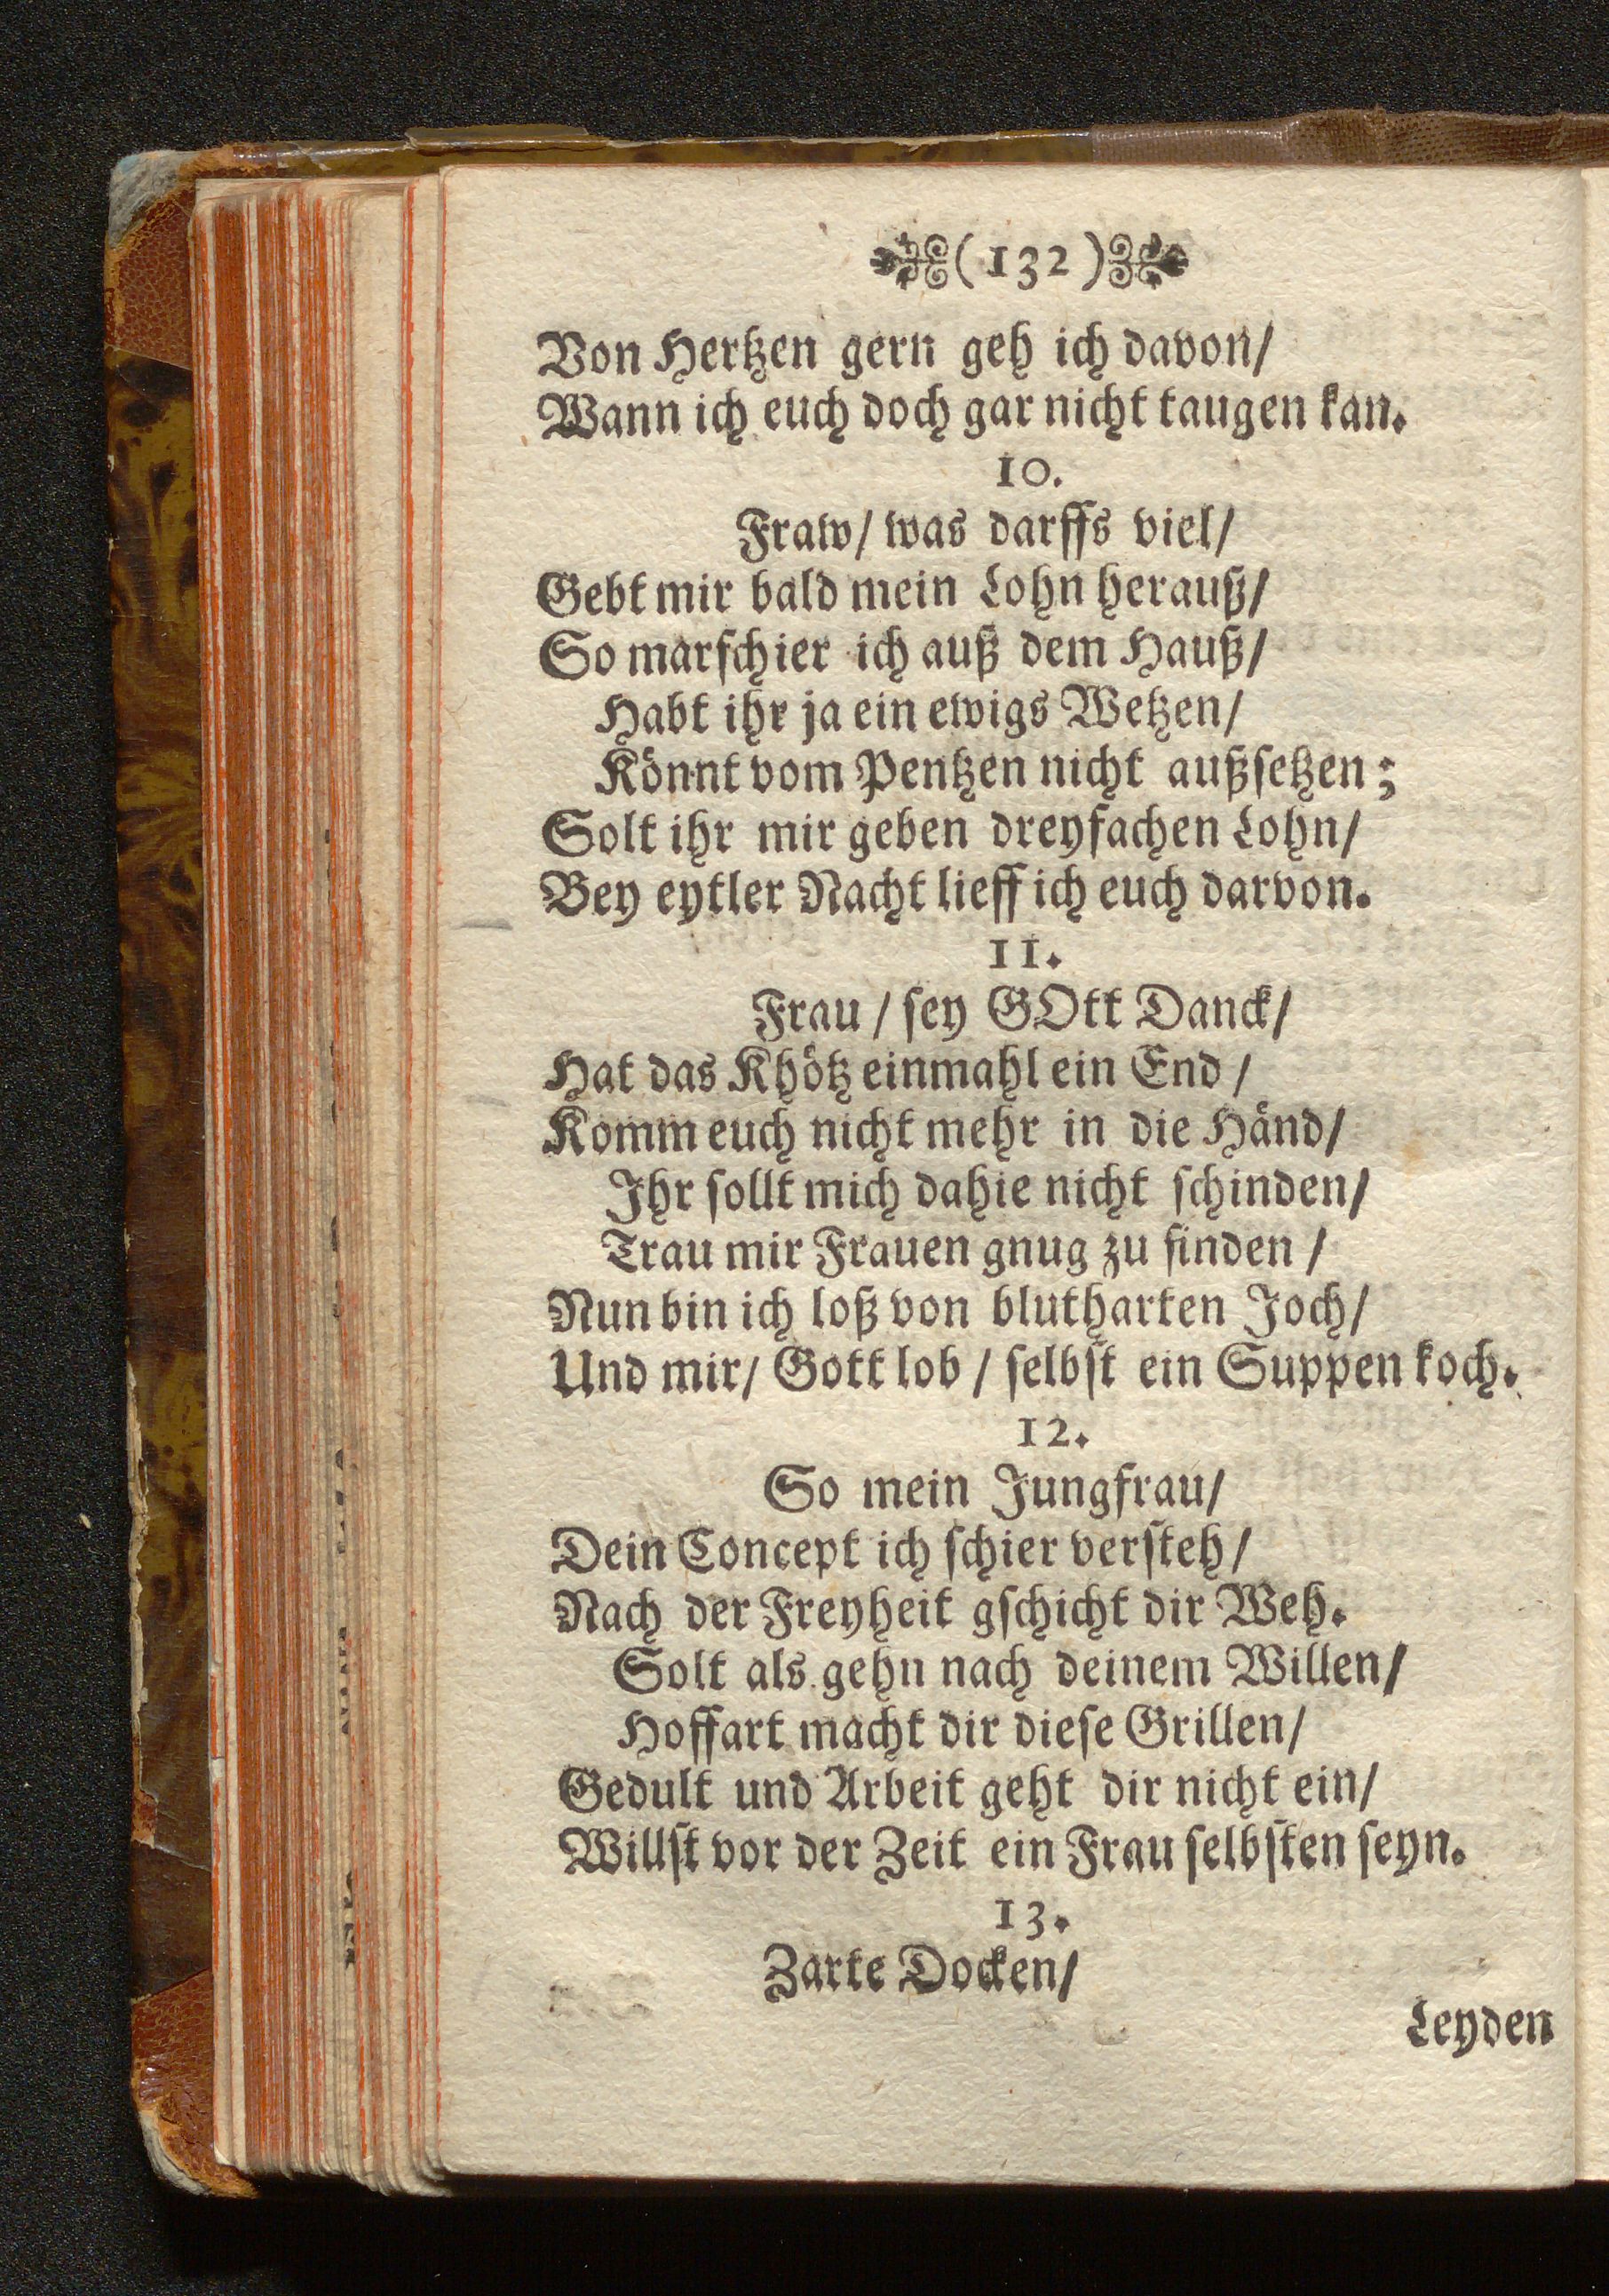 (132)
Von Hertzen gern geh ich davon/
Wann ich euch doch gar nicht taugen kan.
10.
Fraw/ was darffs viel/
Gebt mir bald mein Lohn herauß/
So marschier ich auß dem Hauß/
Habt ihr ja ein ewigs Wetzen/
Könnt vom Pentzen nicht außsetzen;
Solt ihr mir geben dreyfachen Lohn/
Bey eytler Nacht lieff ich euch darvon.
11.
Frau / sey GOtt Danck/
Hat das Khötz einmahl ein End /
Komm euch nicht mehr in die Händ/
Ihr sollt mich dahie nicht schinden/
Trau mir Frauen gnug zu finden /
Nun bin ich loß von blutharten Joch/
Und mir/ Gott lob / selbst ein Suppen koch.
12.
So mein Jungfrau/
Dein Concept ich schier versteh/
Nach der Freyheit gschicht dir Weh.
Solt als gehn nach deinem Willen/
Hoffart macht dir diese Grillen/
Gedult und Arbeit geht dir nicht ein/
Willst vor der Zeit ein Frau selbsten seyn.
13.
Zarte Docken/
Leyden